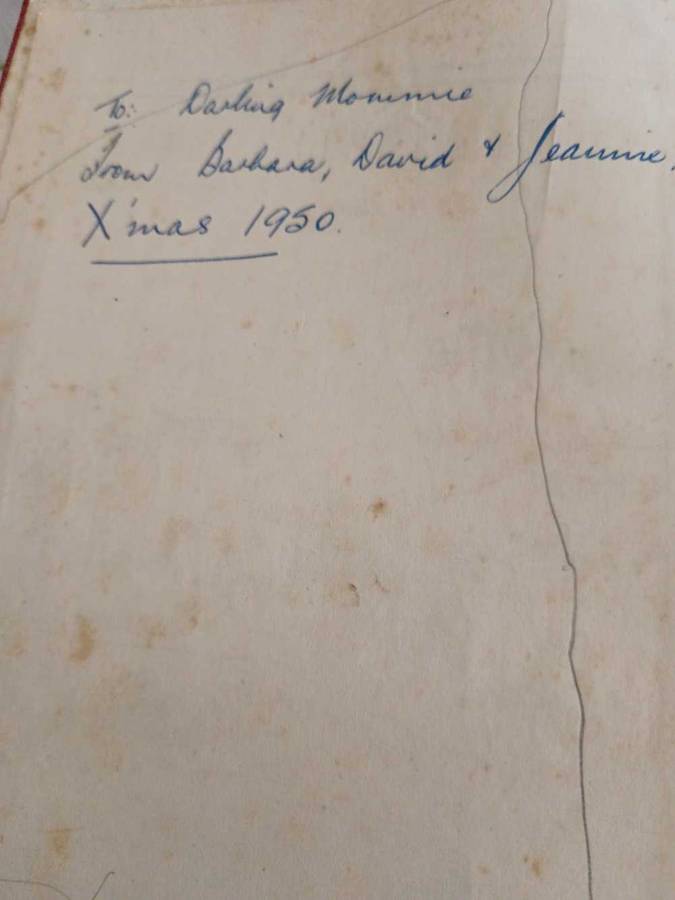 To: Darling Mommie
From Barbara, David & Jeannie.
X'mas 1950.